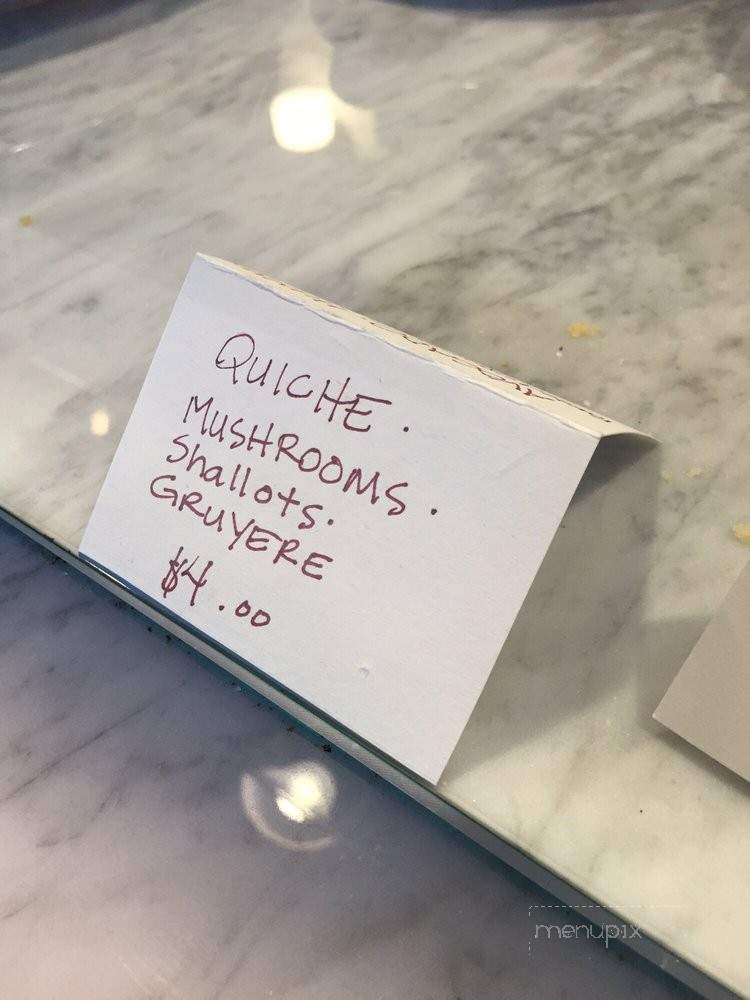 QUICHE.
MUSHROOMS.
Shallots.
GRUYERE
$4.00
menupix